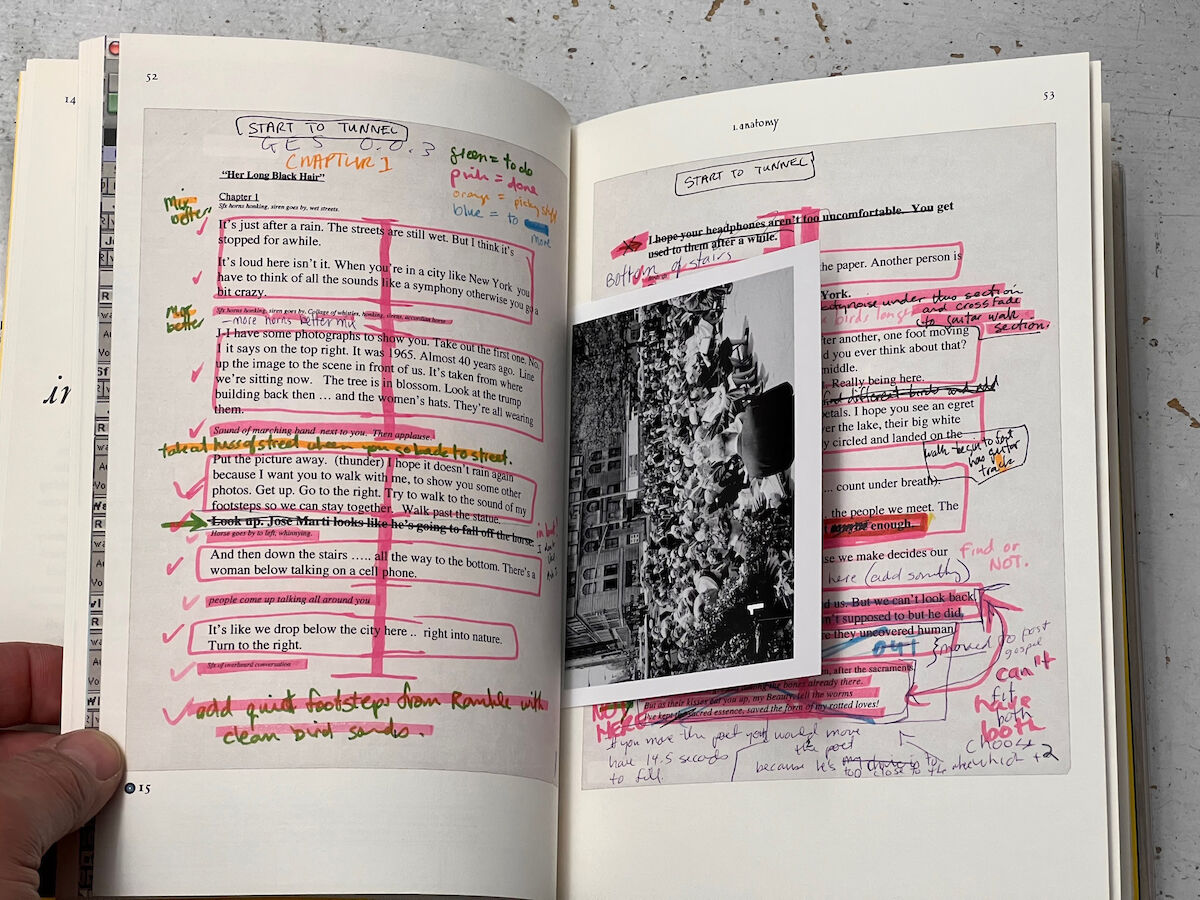 52
14
START TO TUNNEL
GES 0.0.3
CHAPTUR 1
green = to do
pink = done
orange = picky stuff
blue = to
more
"Her Long Black Hair"
Chapter 1
Sfx horns honking, siren goes by, wet streets.
Mix better
It's just after a rain. The streets are still wet. But I think it's
stopped for awhile.
It's loud here isn't it. When you're in a city like New York you
have to think of all the sounds like a symphony otherwise you go a
bit crazy.
Sfx horns honking, siren goes by. Collage of whistles, honking, sirens, accordian horse
Mix better
— more horns better mix
I have some photographs to show you. Take out the first one, No.
1 it says on the top right. It was 1965. Almost 40 years ago. Line
up the image to the scene in front of us. It's taken from where
we're sitting now. The tree is in blossom. Look at the trump
building back then … and the women's hats. They're all wearing
them.
Sound of marching band next to you. Then applause.
street clean
go back to street.
Put the picture away. (thunder) I hope it doesn't rain again
because I want you to walk with me, to show you some other
photos. Get up. Go to the right. Try to walk to the sound of my
footsteps so we can stay together. Walk past the statue.
Look up. Jose Marti looks like he's going to fall off the horse.
Horse goes by to left, whinnying.
And then down the stairs ….. all the way to the bottom. There's a
woman below talking on a cell phone.
people come up talking all around you
It's like we drop below the city here .. right into nature.
Turn to the right.
Sfx of overheard conversation
add quiet footsteps from Ramble with
clean bird sands.
15
53
1. anatomy
START TO TUNNEL
I hope your headphones aren't too uncomfortable. You get
used to them after a while.
Bottom of stairs
the paper. Another person is
York.
noise under this section
and crossfade
to guitar walk
section.
birds longer
ter another, one foot moving
d you ever think about that?
middle.
. Really being here.
find different birds and add
etals. I hope you see an egret
er the lake, their big white
y circled and landed on the
walk begin to
has guitar
track
… count under breath).
, the people we meet. The
enough.
se we make decides our
Find or
NOT.
here (add somthg)
d us. But we can't look back,
n't supposed to but he did,
ce they uncovered human
out
moved to post
gospel
n, after the sacraments,
ing the bones already there.
But as their kisses eat you up, my Beauty, tell the worms
I've kept the sacred essence, saved the form of my rotted loves!
can't
fit
both
have
both
choose
which
NOT
HERE
if you move the poet you would move
have 14.5 seconds
to fill.
the poet
because he's
too close to the